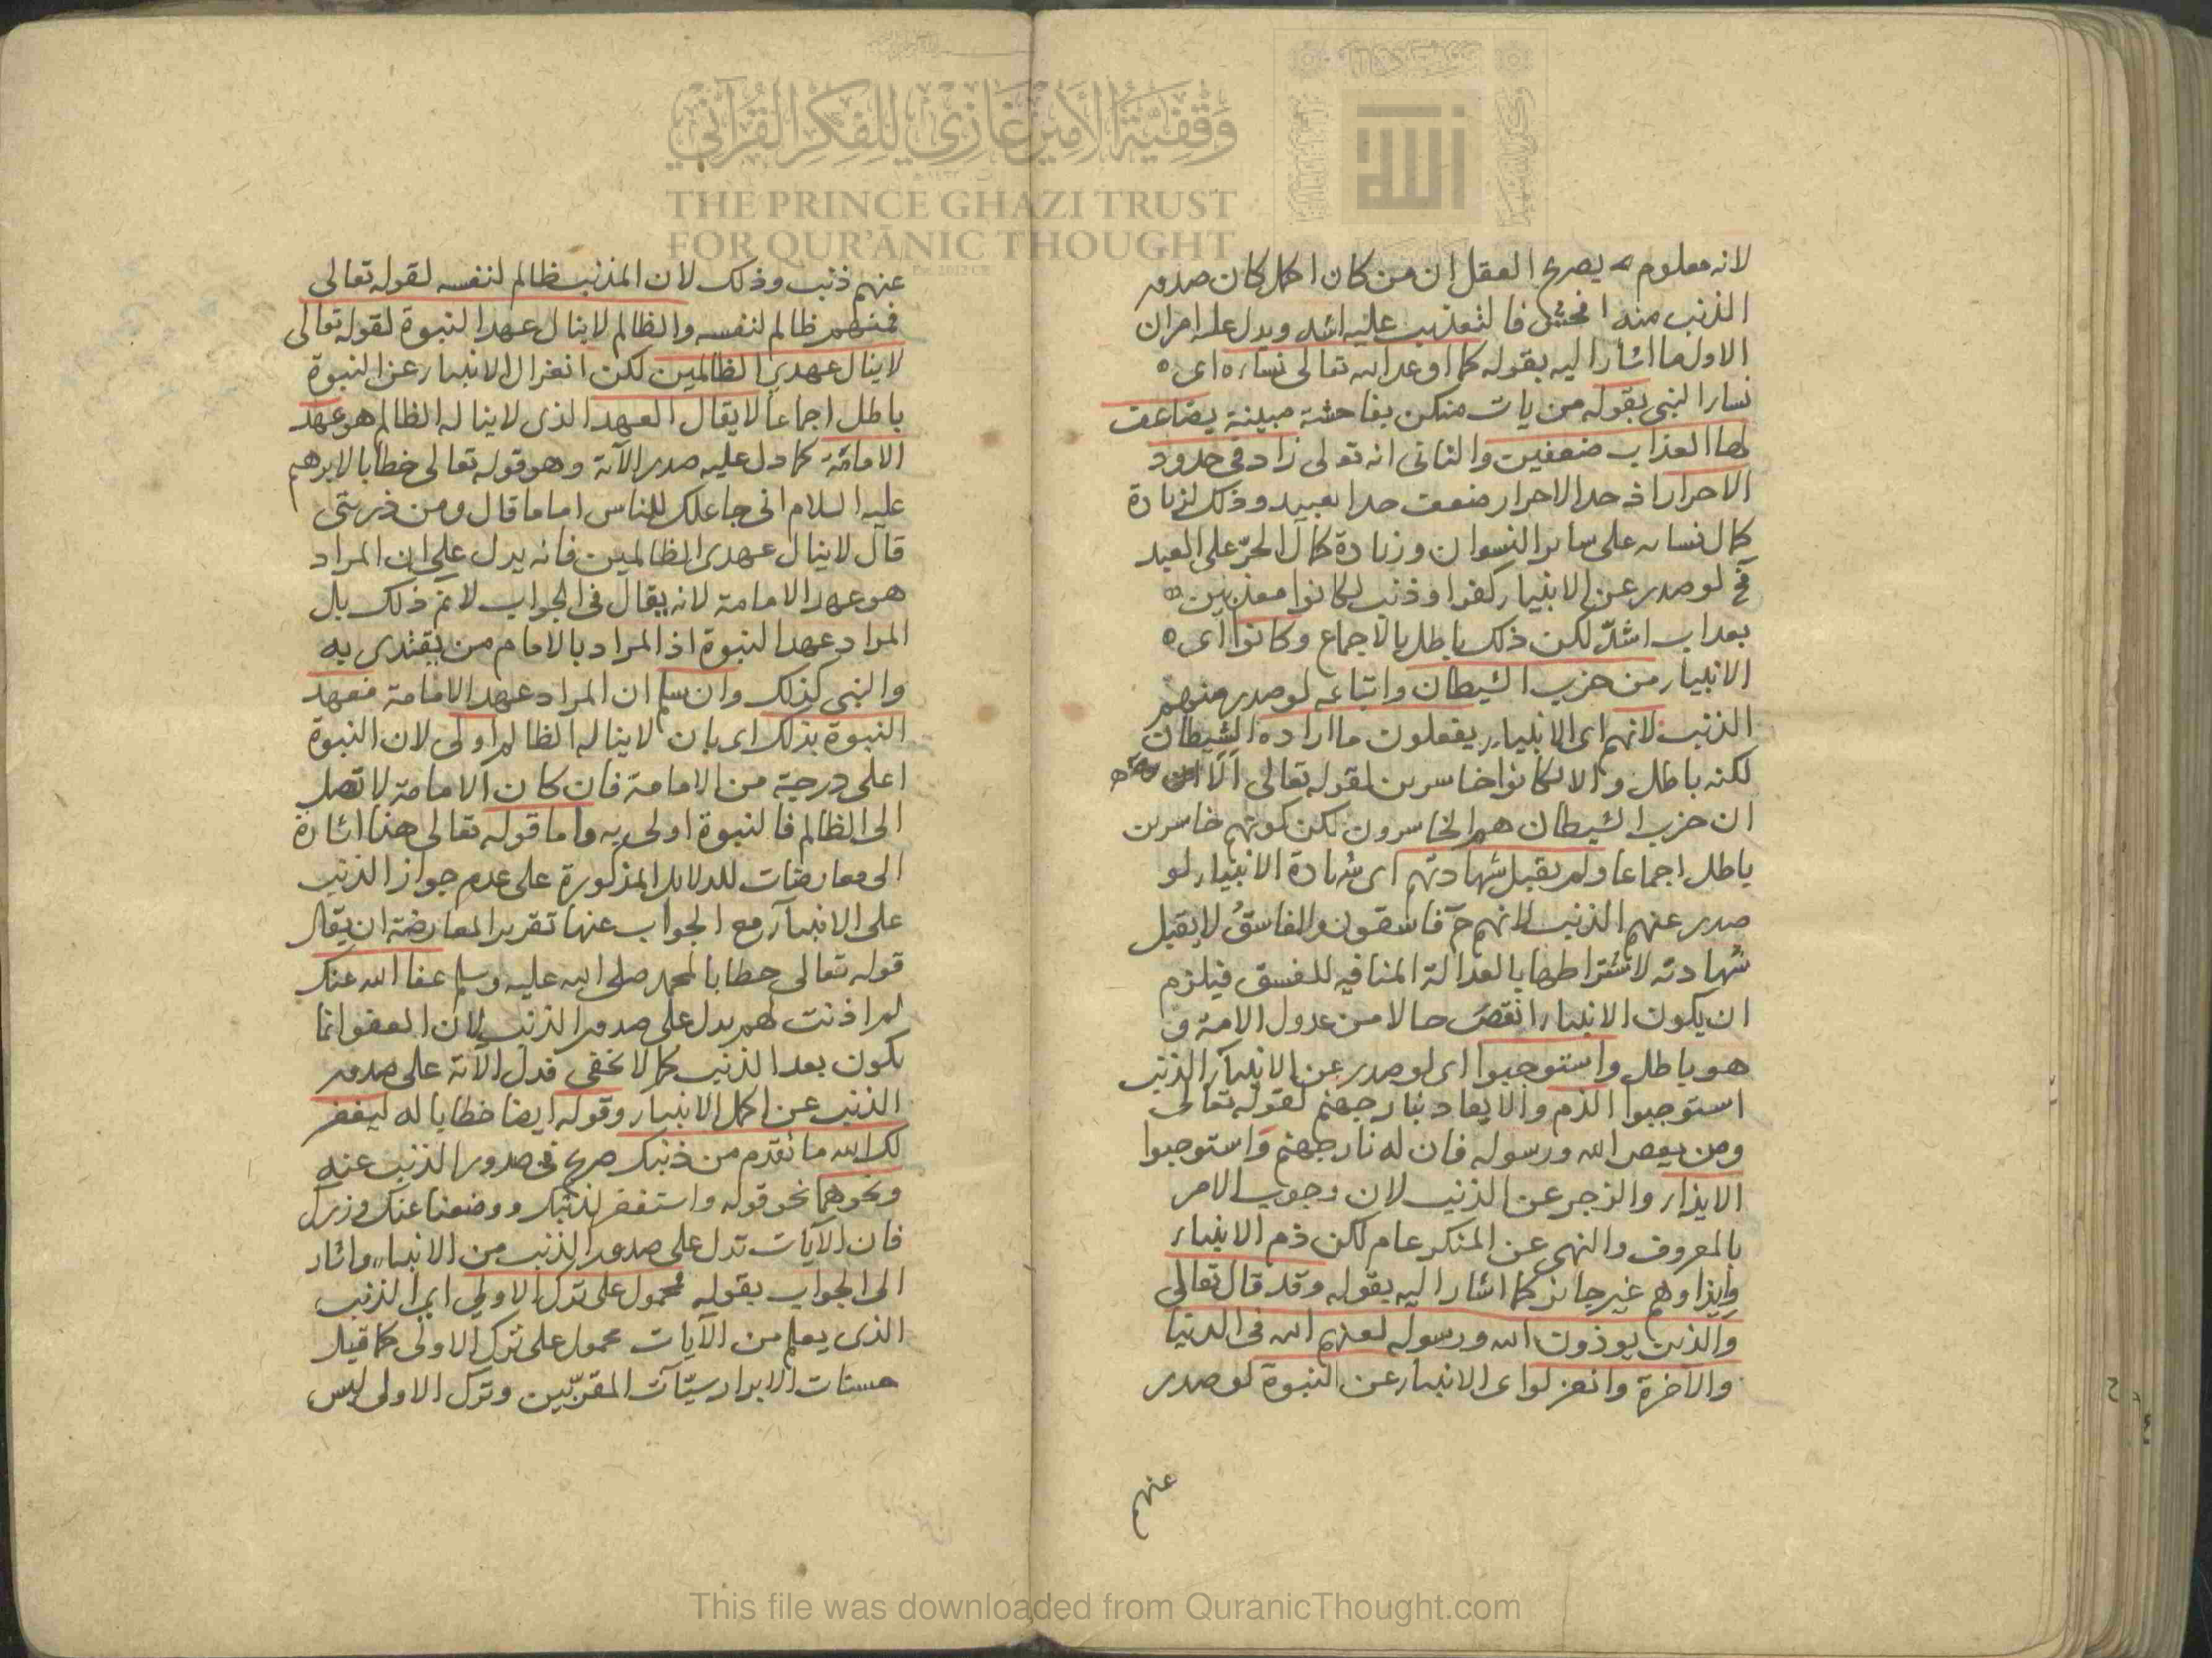 لانه معلوم بصريح العقل ان من كان اكمل كان صدور
الذنب منه افحش فالتعذيب عليه اشد ويدل عليه امران
الاول ما اشار اليه بقوله كما اوعد الله تعالى نساءه اى
نساء النبى بقوله من يات منكن بفاحشة مبينة يضاعف
لها العذاب ضعفين والثانى انه تعالى زاد فى حدود
الاحرار اذ حد الاحرار ضعف حد العبيد وذلك لزيادة
كمال نسائه على سائر النسوان وزيادة كمال الحر على العبد
فح لو صدر عن الانبياء كفر او ذنب لكانوا معذبين
بعذاب اشدّ لكن ذلك باطل بالاجماع وكانوا اى
الانبياء من حزب الشيطان واتباعه لو صدر منهم
الذنب لانهم اى الانبياء يفعلون ما اراده الشيطان
لكنه باطل والا لكانوا خاسرين لقوله تعالى الا
ان حزب الشيطان هم الخاسرون لكن كونهم خاسرين
باطل اجماعا ولم يقبل شهادتهم اى شهادة الانبياء لو
صدر عنهم الذنب لانهم ح فاسقون والفاسق لا يقبل
شهادته لاشتراطها بالعدالة المنافيه للفسق فيلزم
ان يكون الانبياء انقص حالا من عدول الامة و
هو باطل واستوجبوا اى لو صدر عن الانبياء الذنب
استوجبوا الذم والايعاد بنار جهنم لقوله تعالى
ومن يعص الله ورسوله فان له نار جهنم واستوجبوا
الايذاء والزجر عن الذنب لان وجوب الامر
بالمعروف والنهى عن المنكر عام لكن ذم الانبياء
وايذاوهم غير جائز كما اشار اليه بقوله وقد قال تعالى
والذين يوذون الله ورسوله لعنهم الله فى الدنيا
والآخرة وانعزلوا اى الانبياء عن النبوة لو صدر
عنهم
عنهم ذنب وذلك لان المذنب ظالم لنفسه لقوله تعالى
فمنهم ظالم لنفسه والظالم لا ينال عهد النبوة لقوله تعالى
لا ينال عهدي الظالمين لكن انعزال الانبياء عن النبوة
باطل اجماعا لا يقال العهد الذى لا يناله الظالم هو عهد
الامامة كما دل عليه صدر الآية وهو قوله تعالى خطابا لابرهيم
عليه السلام انى جاعلك للناس اماما قال ومن ذريتى
قال لا ينال عهدى الظالمين فانه يدل على ان المراد
هو عهد الامامة لانه يقال فى الجواب لا نم ذلك بل
المراد عهد النبوة اذ المراد بالامام من يقتدى به
والنبى كذلك وان سلم ان المراد عهد الامامة فعهد
النبوة بذلك اى بان لا يناله الظالم اولى لان النبوة
اعلى درجة من الامامة فان كان الامامة لا تصل
الى الظالم فالنبوة اولى به واما قوله تعالى هذا اشارة
الى معارضات للدلائل المذكورة على عدم جواز الذنب
على الانبياء مع الجواب عنها تقرير المعارضة ان يقال
قوله تعالى خطابا لمحمد صلى الله عليه وسلم عفا الله عنك
لم اذنت لهم يدل على صدور الذنب لان العفو انما
يكون بعد الذنب كما لا يخفى فدل الآية على صدور
الذنب عن اكمل الانبياء وقوله ايضا خطابا له ليغفر
لك الله ما تقدم من ذنبك صريح فى صدور الذنب عنه
ونحوهما نحو قوله واستغفر لذنبك ووضعنا عنك وزرك
فان الآيات تدل على صدور الذنب من الانبياء واشار
الى الجواب بقوله محمول على ترك الاولى اى الذنب
الذى يعلم من الآيات محمول على ترك الاولى كما قيل
حسنات الابرار سيّآت المقرّبين وترك الاولى ليس
وَقْفِيَّةُ الأَمِيرِ غَازِي لِلْفِكْرِ القُرْآنِيِّ
THE PRINCE GHAZI TRUST
FOR QUR'ĀNIC THOUGHT
This file was downloaded from QuranicThought.com